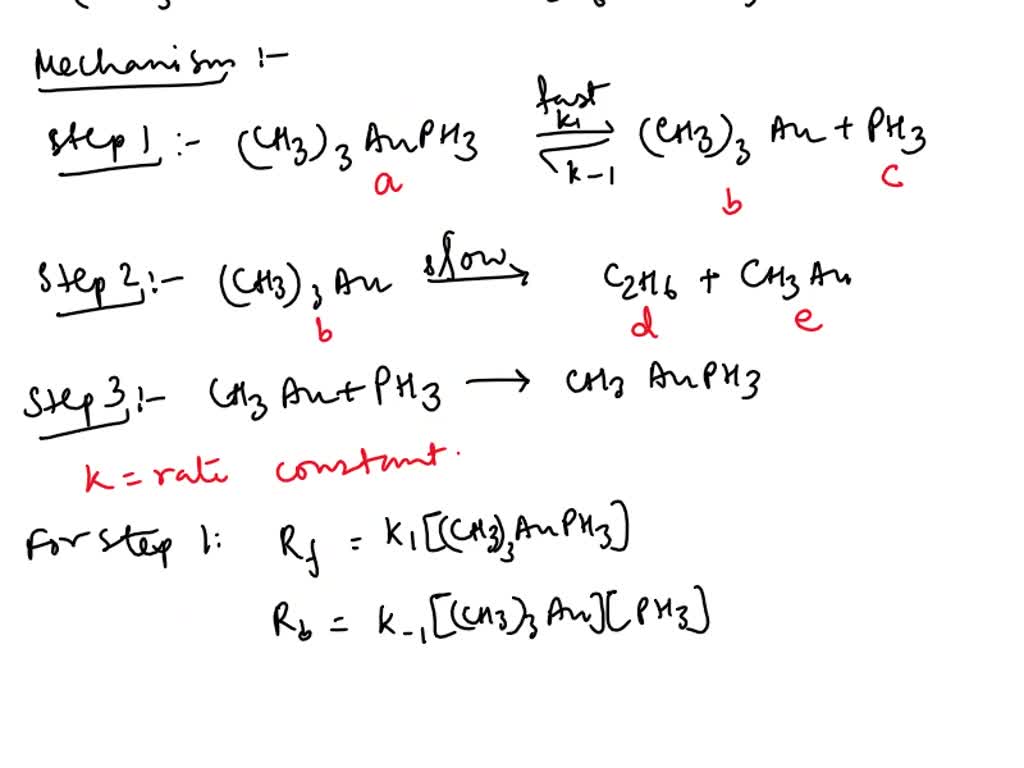 Mechanism :-
Step 1 :- (CH3)3 AuPH3 fast k1 k-1 (CH3)3 Au + PH3
a b c
Step 2 :- (CH3)3 Au slow → C2H6 + CH3 Au
b d e
Step 3 :- CH3 Au + PH3 → CH3 AuPH3
k = rate constant.
For step 1: Rf = K1[(CH3)3AuPH3]
Rb = K-1[(CH3)3 Au][PH3]